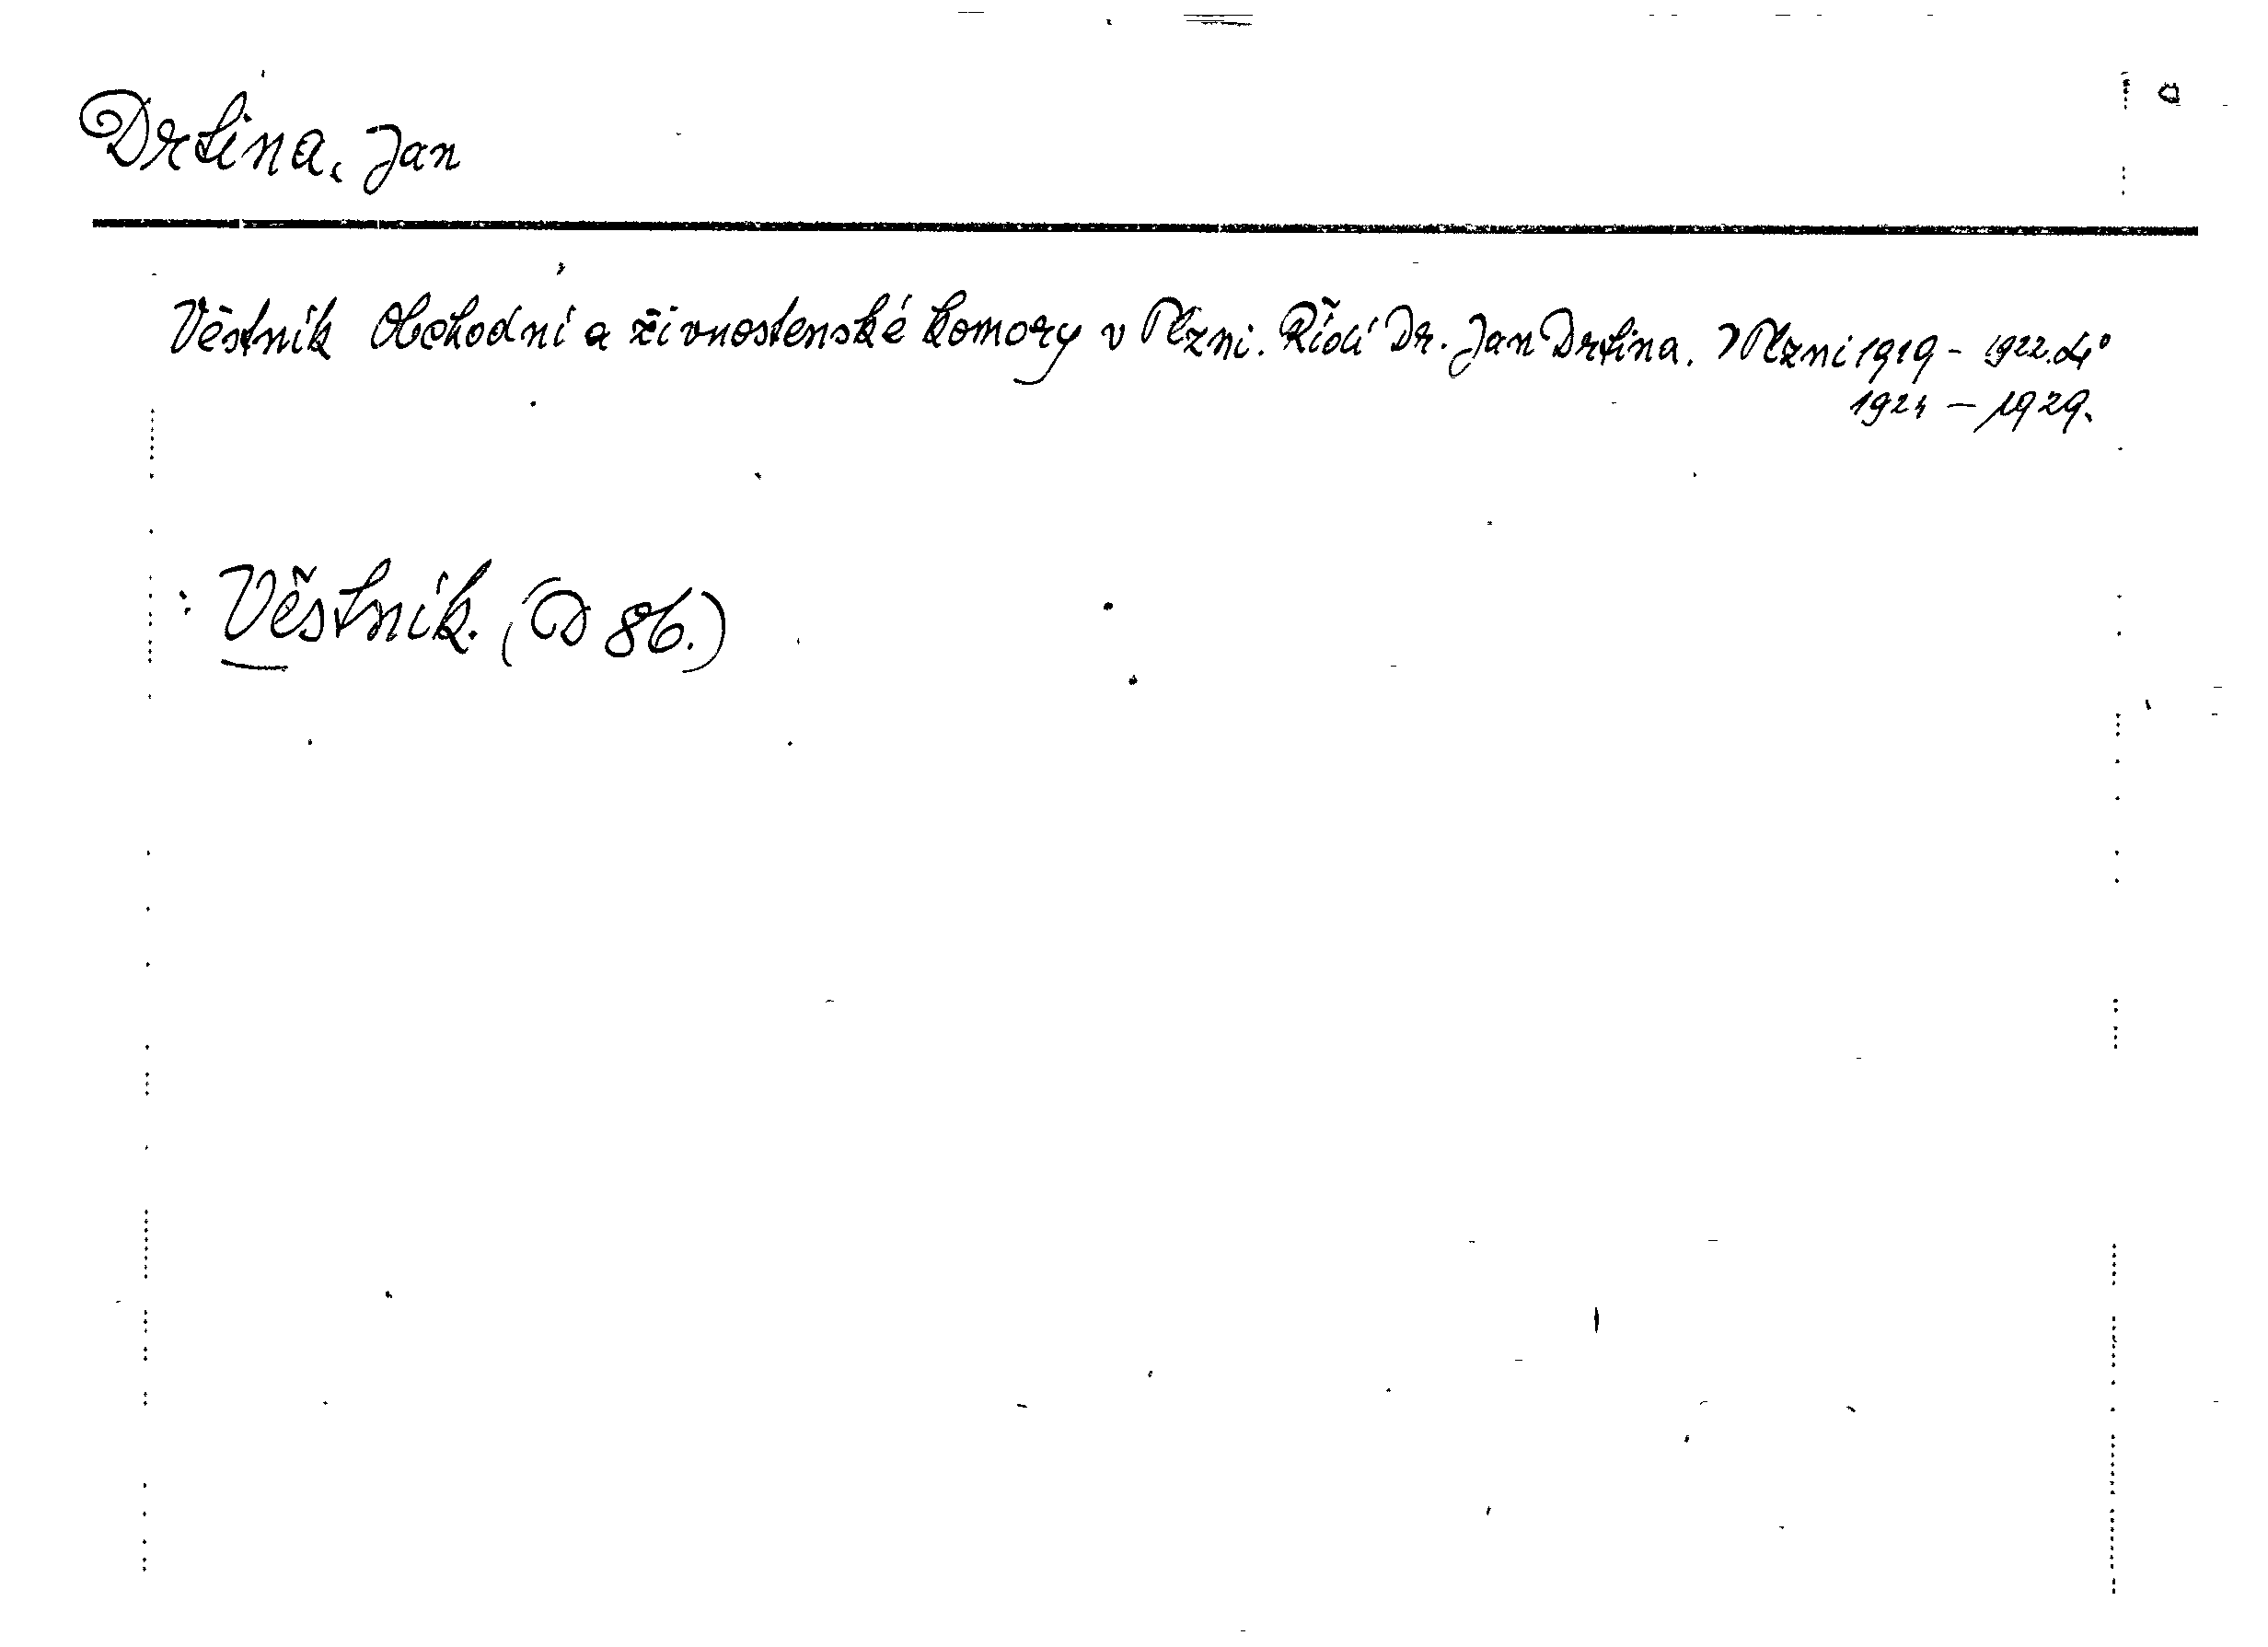 Drtina, Jan
Věstník Obchodní a živnostenské komory v Plzni. Řídí Dr. Jan Drtina. V Plzni 1919 - 1922. 4°
1924 - 1929.
: Věstník. (D 86.)